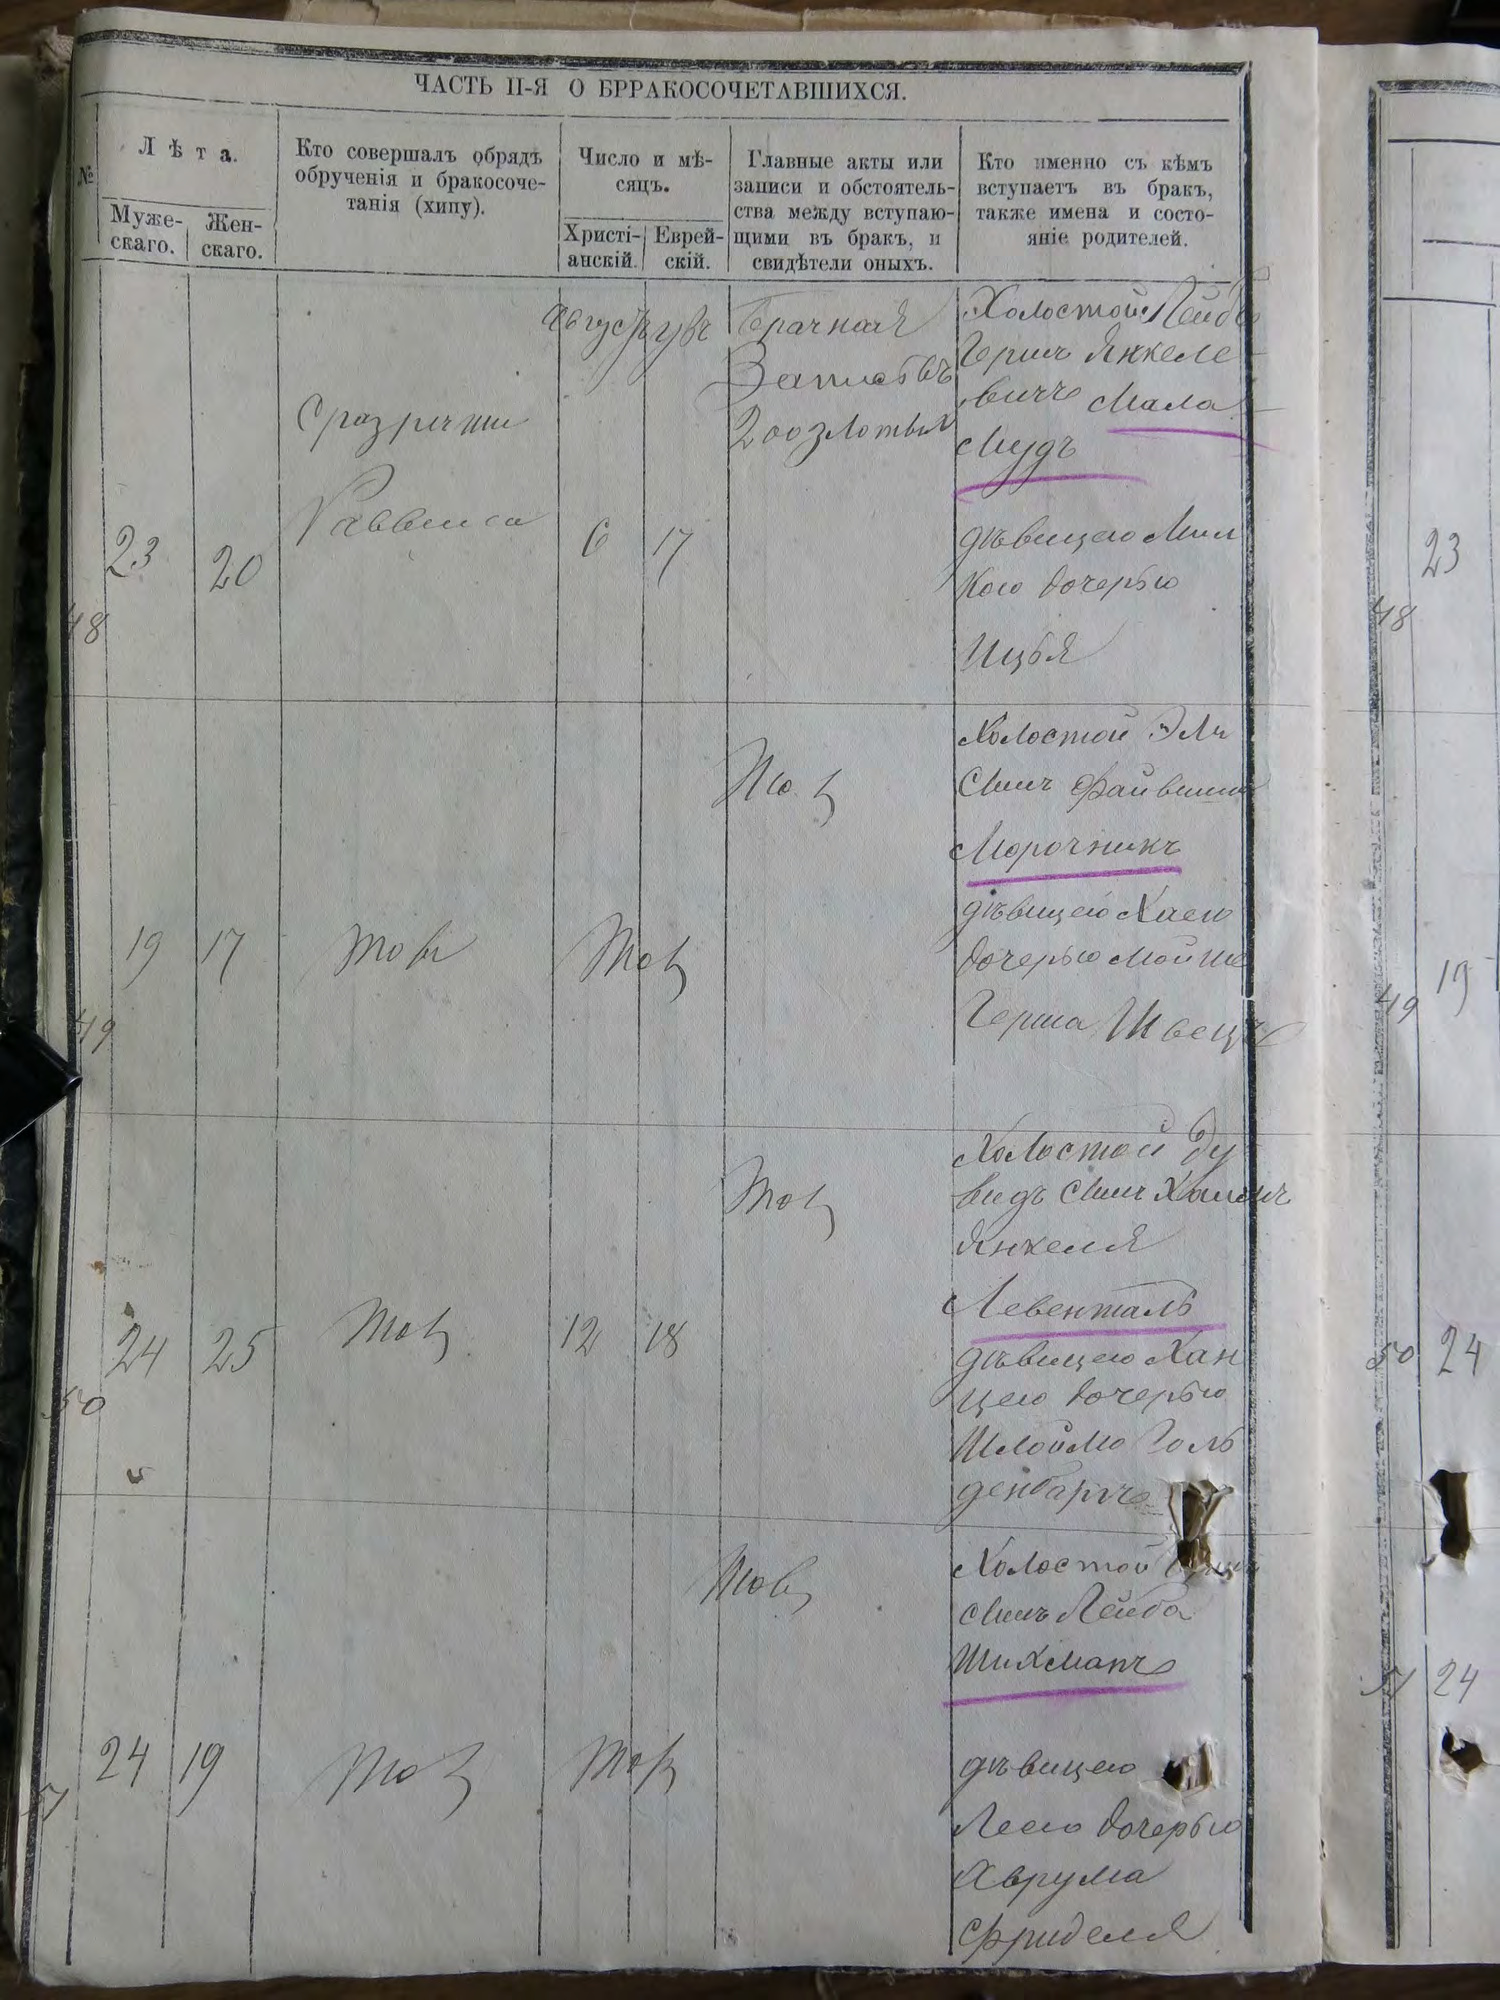 ЧАСТЬ II-Я О БРРАКОСОЧЕТАВШИХСЯ.
№
Лѣта.
Муже-
скаго.
Жен-
скаго.
Кто совершалъ обрядъ
обрученія и бракосоче-
танія (хипу).
Число и мѣ-
сяцъ.
Христі-
анскій.
Еврей-
скій.
Главные акты или
записи и обстоятель-
ства между вступаю-
щими въ бракъ, и
свидѣтели оныхъ.
Кто именно съ кѣмъ
вступаетъ въ бракъ,
также имена и состо-
яніе родителей.
48
23
20
Сразрѣши
Раввина
Августъ
6
17
Брачная
Запись въ
200 злотыхъ
Холостой Лейбъ
Гершъ Янкеле
вичъ Мала
мудъ
дѣвицею Мил
кою дочерью
Ицья
49
19
17
тов
тов
тов
Холостой Эли
сынъ Файвиша
Морочникъ
дѣвицею Хаею
дочерью Мойше
Герша Швецъ
50
24
25
тов
12
18
тов
Холостой Ду
видъ сынъ Хаимъ
Янкеля
Левенталь
дѣвицею Хан
цею дочерью
Шлоймо Голь
денбаргъ
51
24
19
тов
тов
тов
Холостой
сынъ Лейба
Шихманъ
дѣвицею
Леею дочерью
Аврума
Фриделя
23
48
19
49
50
24
51
24